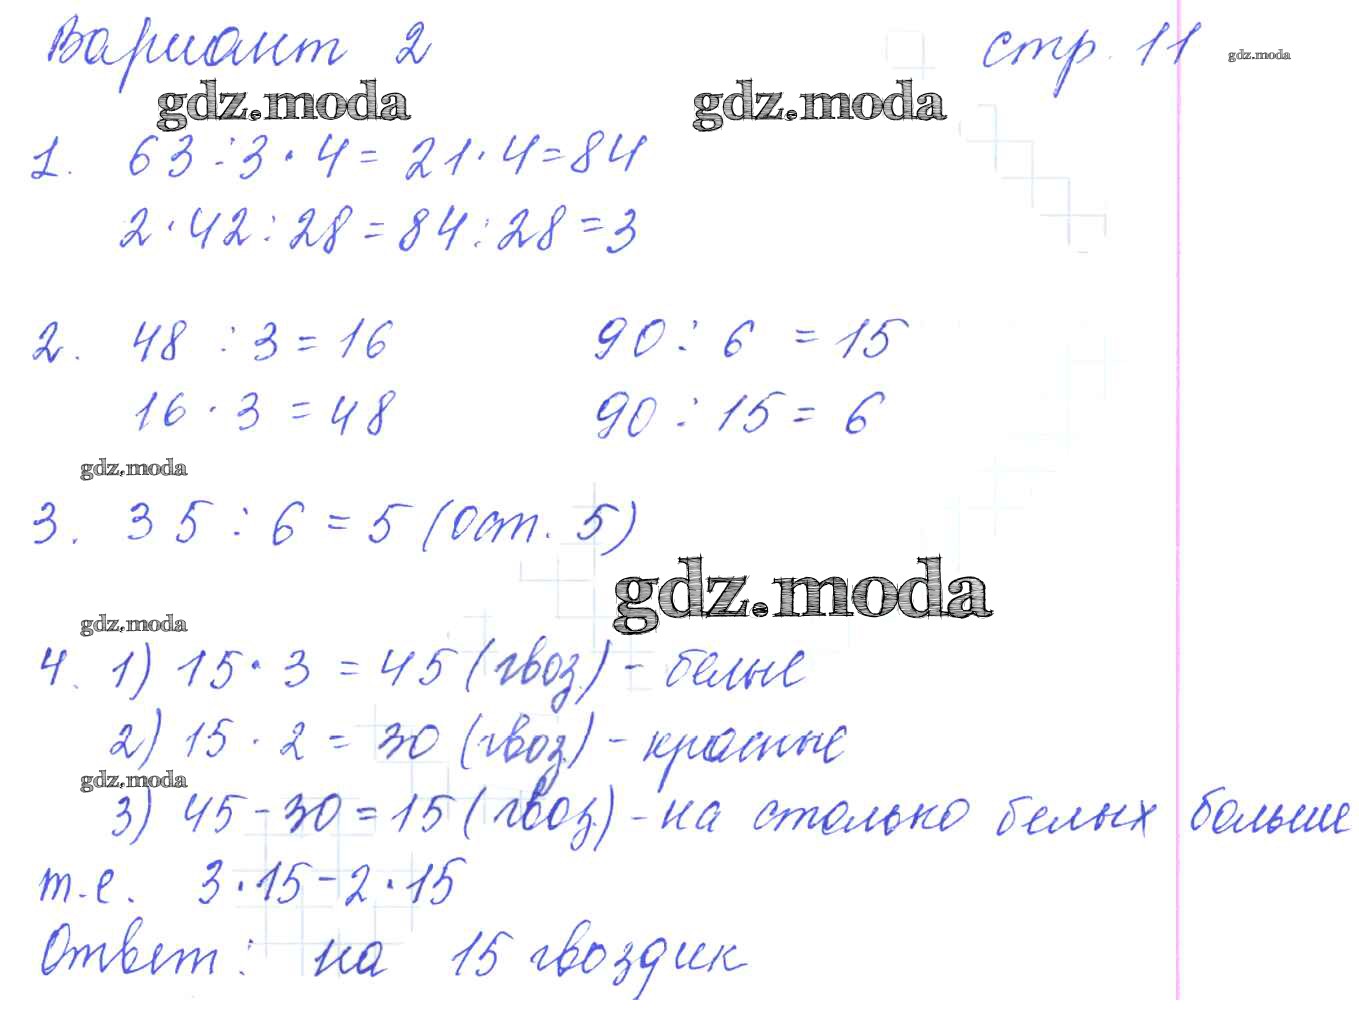 Вариант 2 стр. 11 gdz.moda
gdz.moda gdz.moda
1. 63 ÷ 3 · 4 = 21 · 4 = 84
2 · 42 : 28 = 84 : 28 = 3
2. 48 ÷ 3 = 16 90 ÷ 6 = 15
16 · 3 = 48 90 ÷ 15 = 6
gdz.moda
3. 35 ÷ 6 = 5 (ост. 5)
gdz.moda
gdz.moda
4. 1) 15 · 3 = 45 (гвоз.) - белые
2) 15 · 2 = 30 (гвоз.) - красные
gdz.moda
3) 45 - 30 = 15 (гвоз.) - на столько белых больше
т.е. 3 · 15 - 2 · 15
Ответ: на 15 гвоздик